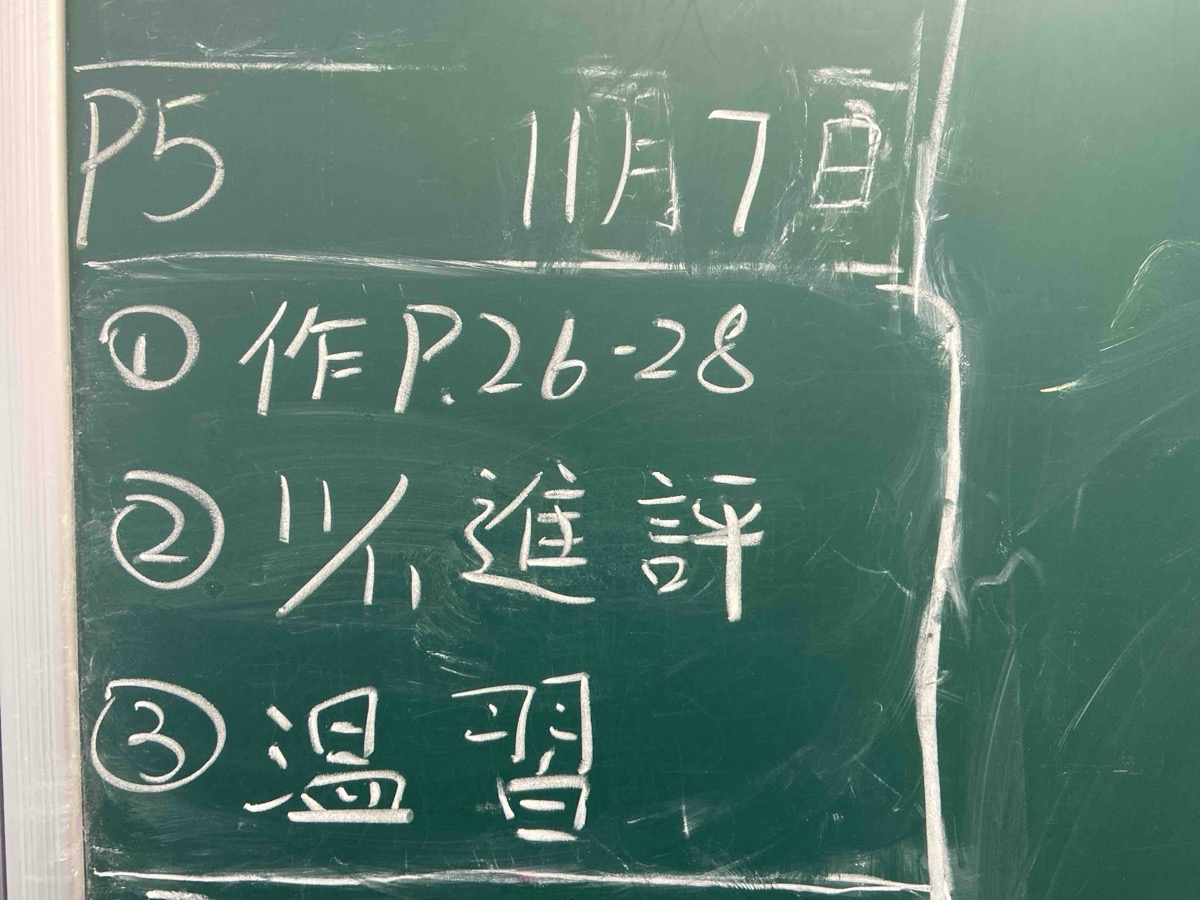 P5 11月7日
① 作P.26-28
② 11/11 進評
③ 温習